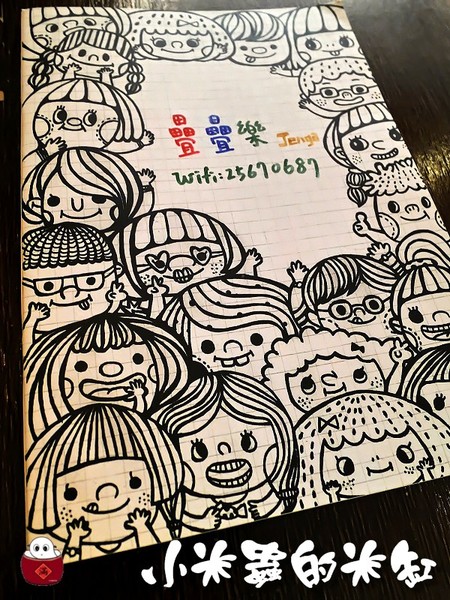 疊疊樂 Jenga
Wifi:25670687
小米蟲的米缸